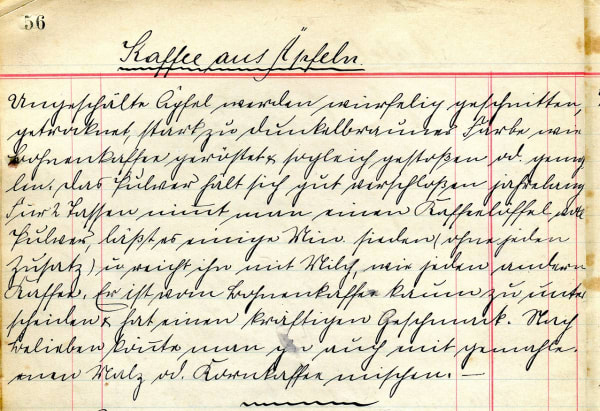 56
Kaffee aus Äpfeln.
Ungeschälte Äpfel werden würfelig geschnitten,
getrocknet, stark zu dunkelbrauner Farbe, wie
Bohnenkaffee geröstet & sogleich gestoßen od. gemah
len. Das Pulver hält sich gut verschloßen jahrelang
Für 2 Tassen nimt man einen Kaffeelöffel voll
Pulver, läßt es einige Min. sieden (ohne jeden
Zusatz) u. reicht ihn mit Milch, wie jeden andern
Kaffee. Er ist vom Bohnenkaffee kaum zu unter
scheiden & hat einen kräftigen Geschmack. Nach
Belieben könte man auch mit gemahle-
enen Malz od. Kornkaffee mischen. —